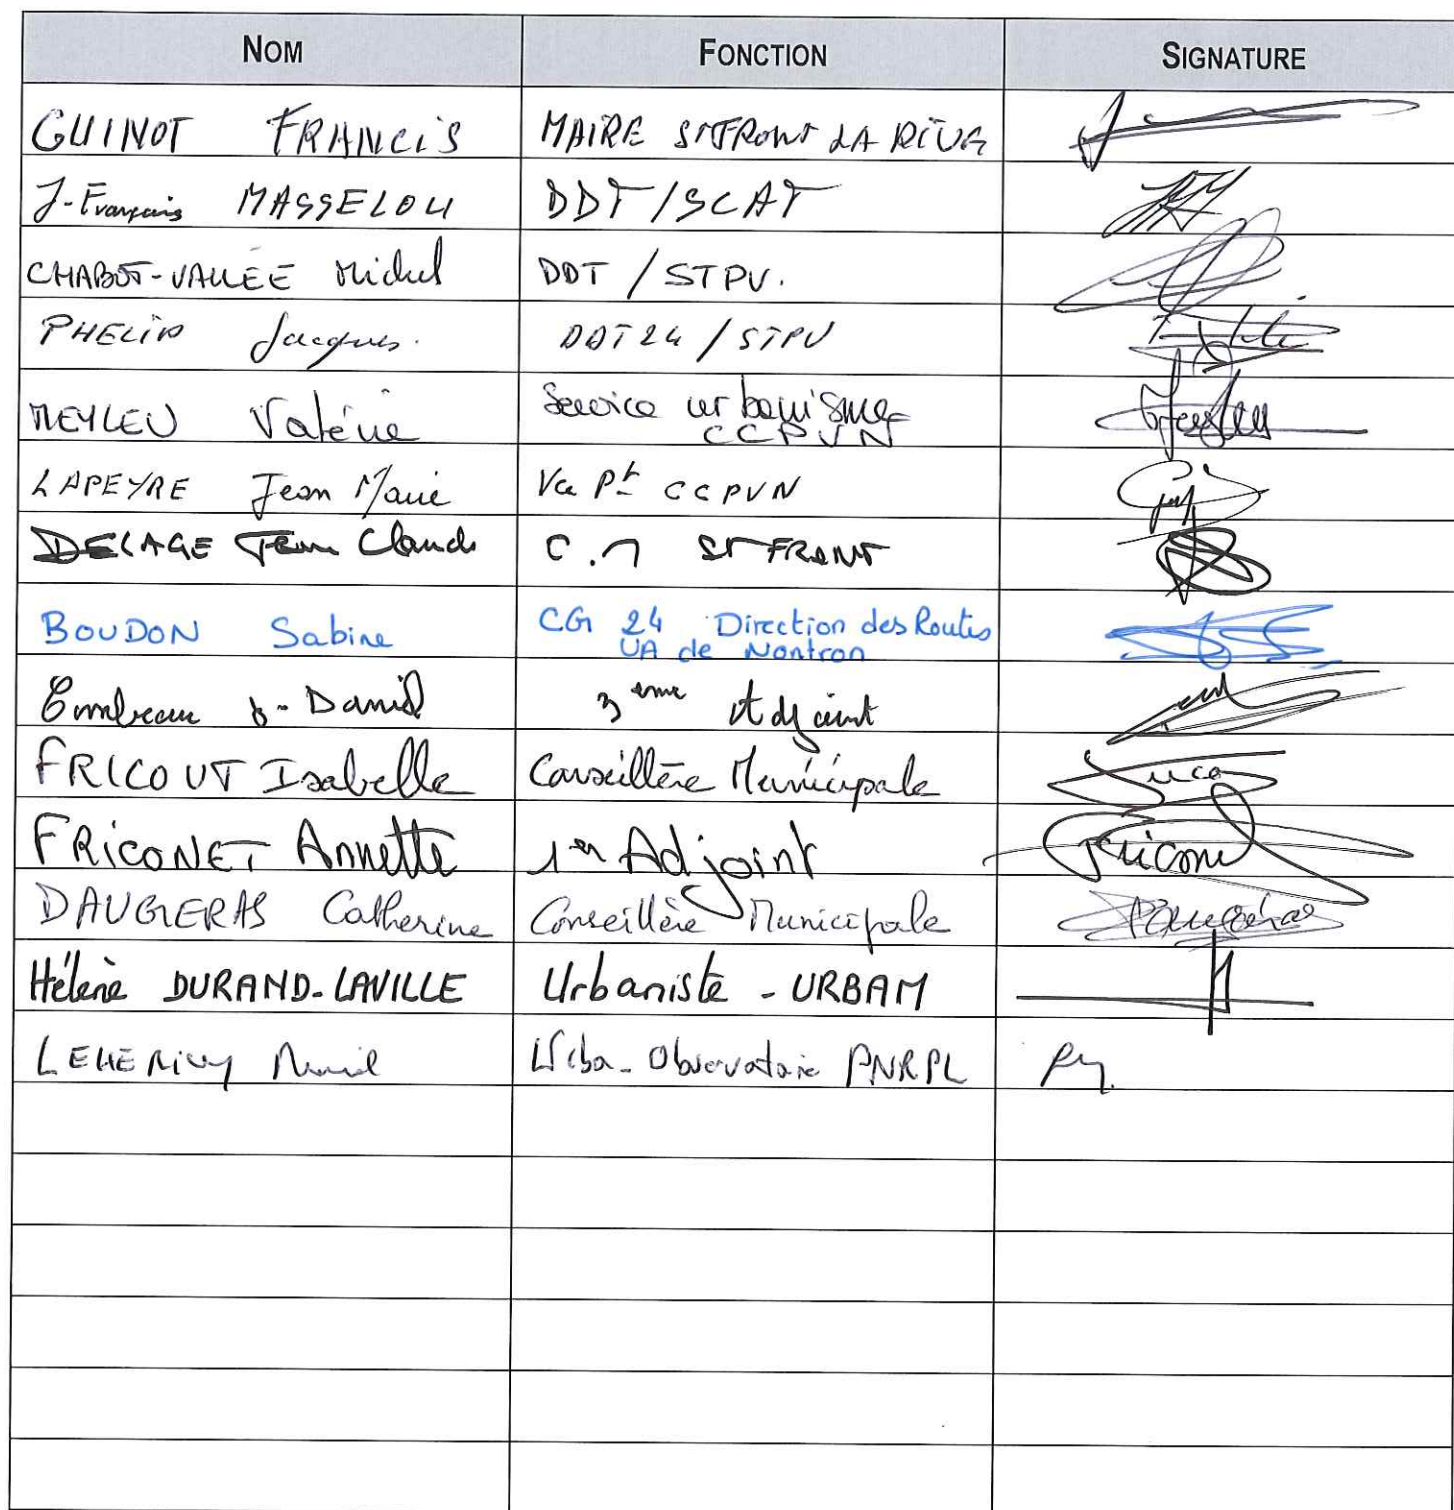 NOM FONCTION SIGNATURE
GUINOT FRANCIS MAIRE ST FRONT LA RIVIERE
J-François MASSELOU DDT/SCAT
CHABOT-VALLEE Michel DDT / STPV.
PHELIP Jacques. DDT24 / STPV
MEYLEU Valérie Service urbanisme
CCPVN
LAPEYRE Jean Marie Vce Pt CCPVN
DELAGE Jean Claude C.M ST FRONT
BOUDON Sabine CG 24 Direction des Routes
UA de Nontron
Combeau J-Daniel 3eme Adjoint
FRICOUT Isabelle Conseillère Municipale
FRICONET Annette 1er Adjoint
DAUGIERAS Catherine Conseillère Municipale
Hélène DURAND-LAVILLE Urbaniste - URBAM
LEHERICY Urba-Observatoire PNRPL